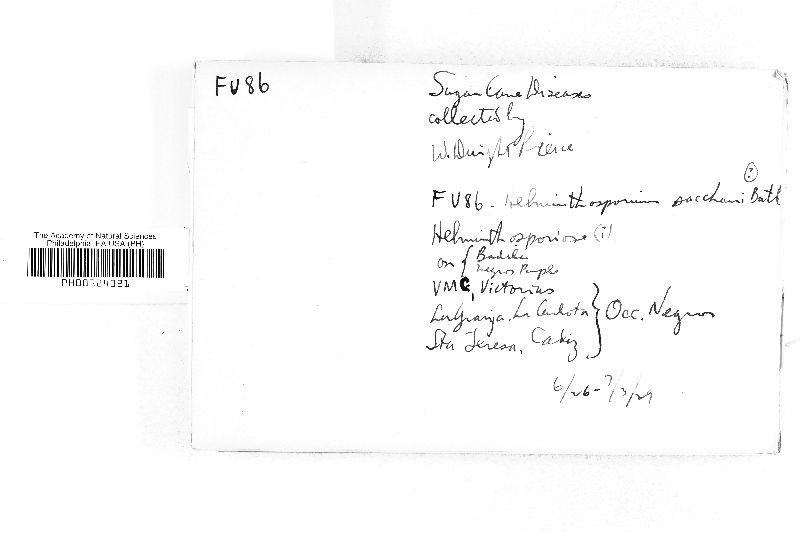 FV86
Sugar Cane Diseases
collected by
W. Dwight Pierce
(?)
FV86 - Helminthosporium sacchari Butl
Helminthosporiose (?)
on { Badila
Negros Purple
VMC, Victorias
La Granja, La Carlota } Occ. Negros
Sta Teresa, Cadiz
6/26 - 7/3/29
The Academy of Natural Sciences
Philadelphia, PA USA (PH)